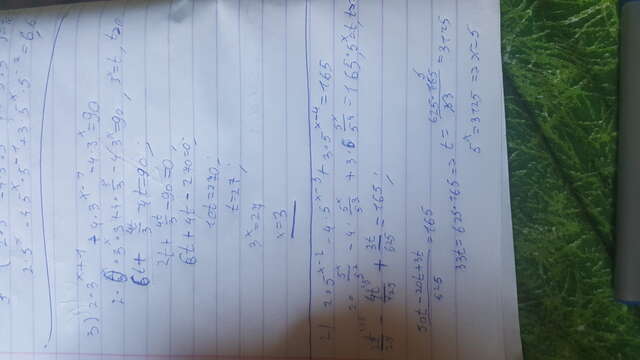 2·5^x − 4·5^x·5^-1 + 3·5^x·5^-2 = 6,6
3) 2·3^(x+1) + 4·3^(x-1) − 4·3^x = 90
2·3^x·3 + 4·3^x/3 − 4·3^x = 90, 3^x = t, t>0
6t + 4t/3 − 4t = 90;
2t + 4t/3 − 90 = 0;
6t + 4t − 270 = 0;
10t = 270;
t = 27;
3^x = 27
x = 3
2) 2·5^(x-2) − 4·5^(x-3) + 3·5^(x-4) = 165
2·5^x/5^2 − 4·5^x/5^3 + 3·5^x/5^4 = 165, 5^x = t,
2t/25 − 4t/125 + 3t/625 = 165;
(50t − 20t + 3t)/625 = 165
33t = 625·165 => t = 625·165/33 = 3125
5^x = 3125 => x = 5